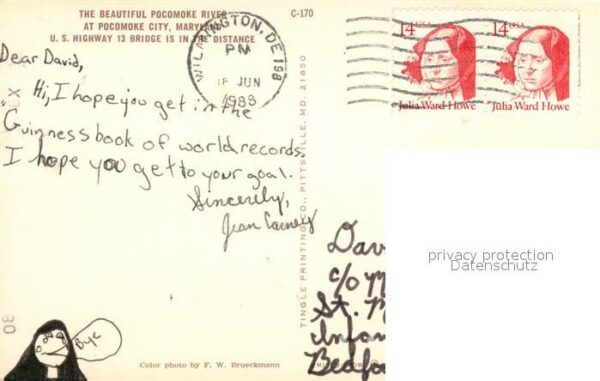 THE BEAUTIFUL POCOMOKE RIVER
AT POCOMOKE CITY, MARYLAND
U. S. HIGHWAY 13 BRIDGE IS IN THE DISTANCE
C-170
WILMINGTON, DE 198
PM
18 JUN
1988
14 USA
Julia Ward Howe
14 USA
Julia Ward Howe
Dear David,
Hi, I hope you get in the
Guinness book of world records.
I hope you get to your goal.
Sincerely,
Jean
Bye
TINGLE PRINTING CO., PITTSVILLE, MD. 21850
Dav
c/o M
St. M
Infan
Bedfo
privacy protection
Datenschutz
Color photo by F. W. Brueckmann